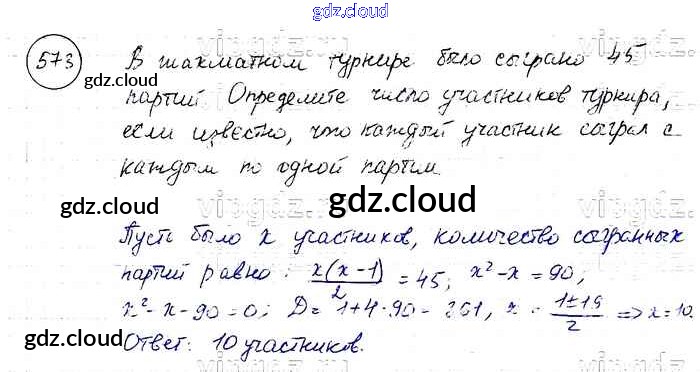 gdz.cloud
573 В шахматном турнире было сыграно 45
партий Определите число участников турнира,
если известно, что каждый участник сыграл с
каждым по одной партии.
gdz.cloud
gdz.cloud
gdz.cloud
gdz.cloud
Пусть было x участников, количество сыгранных
партий равно: x(x-1)/2 = 45; x²-x=90,
x²-x-90=0; D=1+4·90=361, x = 1±19/2 => x=10.
gdz.cloud
gdz.cloud
Ответ: 10 участников.